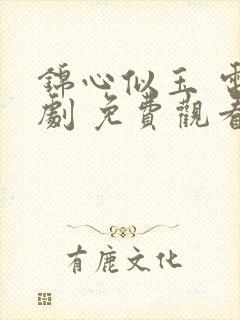 錦心似玉 電
劇 免費觀看
有鹿文化